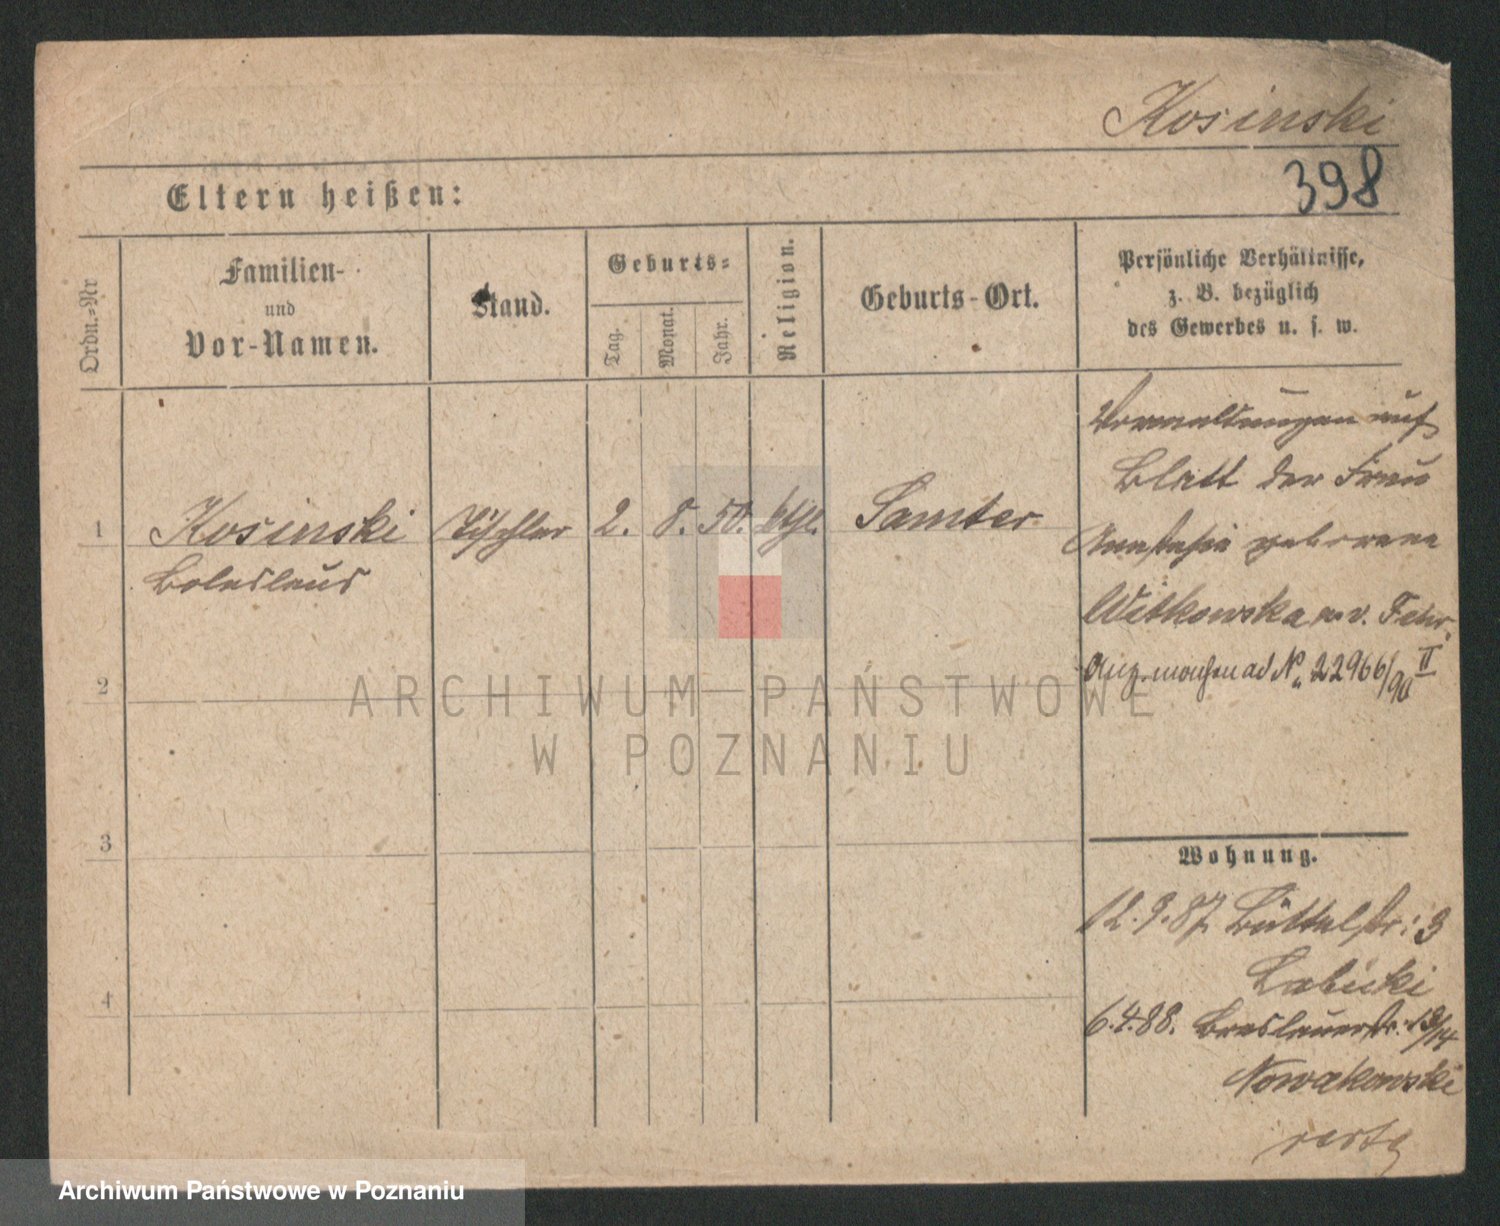 Kosinski
398
Eltern heißen:
Ordn.-Nr
Familien-
und
Vor-Namen.
Stand.
Geburts-
Tag.
Monat.
Jahr.
Religion.
Geburts-Ort.
Persönliche Verhältnisse,
z. B. bezüglich
des Gewerbes u. s. w.
1
Kosinski
Boleslaus
Tischler
2.
8.
50.
kthl.
Samter
auf
Blatt der Frau
Anastasia geborene
Witkowska
ad No 22966/90 II
2
3
4
Wohnung.
12.9.87 Büttelstr: 3
Labicki
6.4.88. Breslauerstr. 13/14
Nowakowski
ARCHIWUM PAŃSTWOWE
W POZNANIU
Archiwum Państwowe w Poznaniu